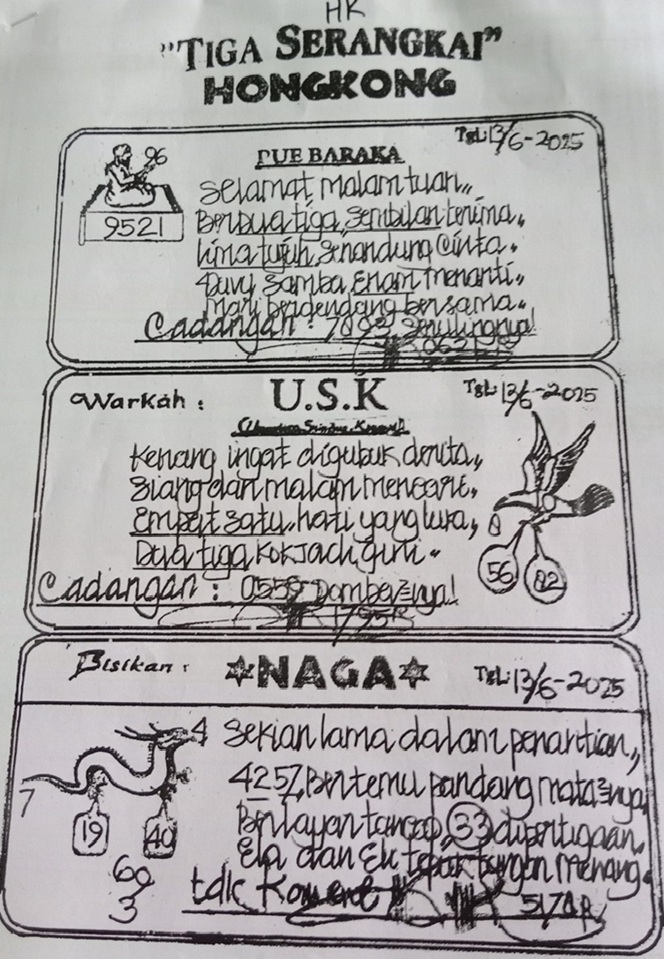 HK
"TIGA SERANGKAI"
HONGKONG
PUE BARAKA
TGL: 13/6-2025
96
9521
Selamat malam tuan,,
Berdua tiga, Sembilan terima,
lima tujuh, Senandung Cinta.
Duvy Samba, Enam menanti,
Mari berdendang bersama.
Cadangan :
Warkah :
U.S.K
TGL: 13/6-2025
Kenang ingat digubuk derita,,
Siang dan malam mencari.
Empat satu, hati yang luka,
Dua tiga kok jadi gini.
56
02
Cadangan : 0559
1795 R
Bisikan :
NAGA
TGL: 13/6-2025
4
7
19
40
60
3
Sekian lama dalam penantian,,
4257, Bertemu pandang mata
33 dipertigaan.
Ela dan Elu tepuk tangan menang.
tdk